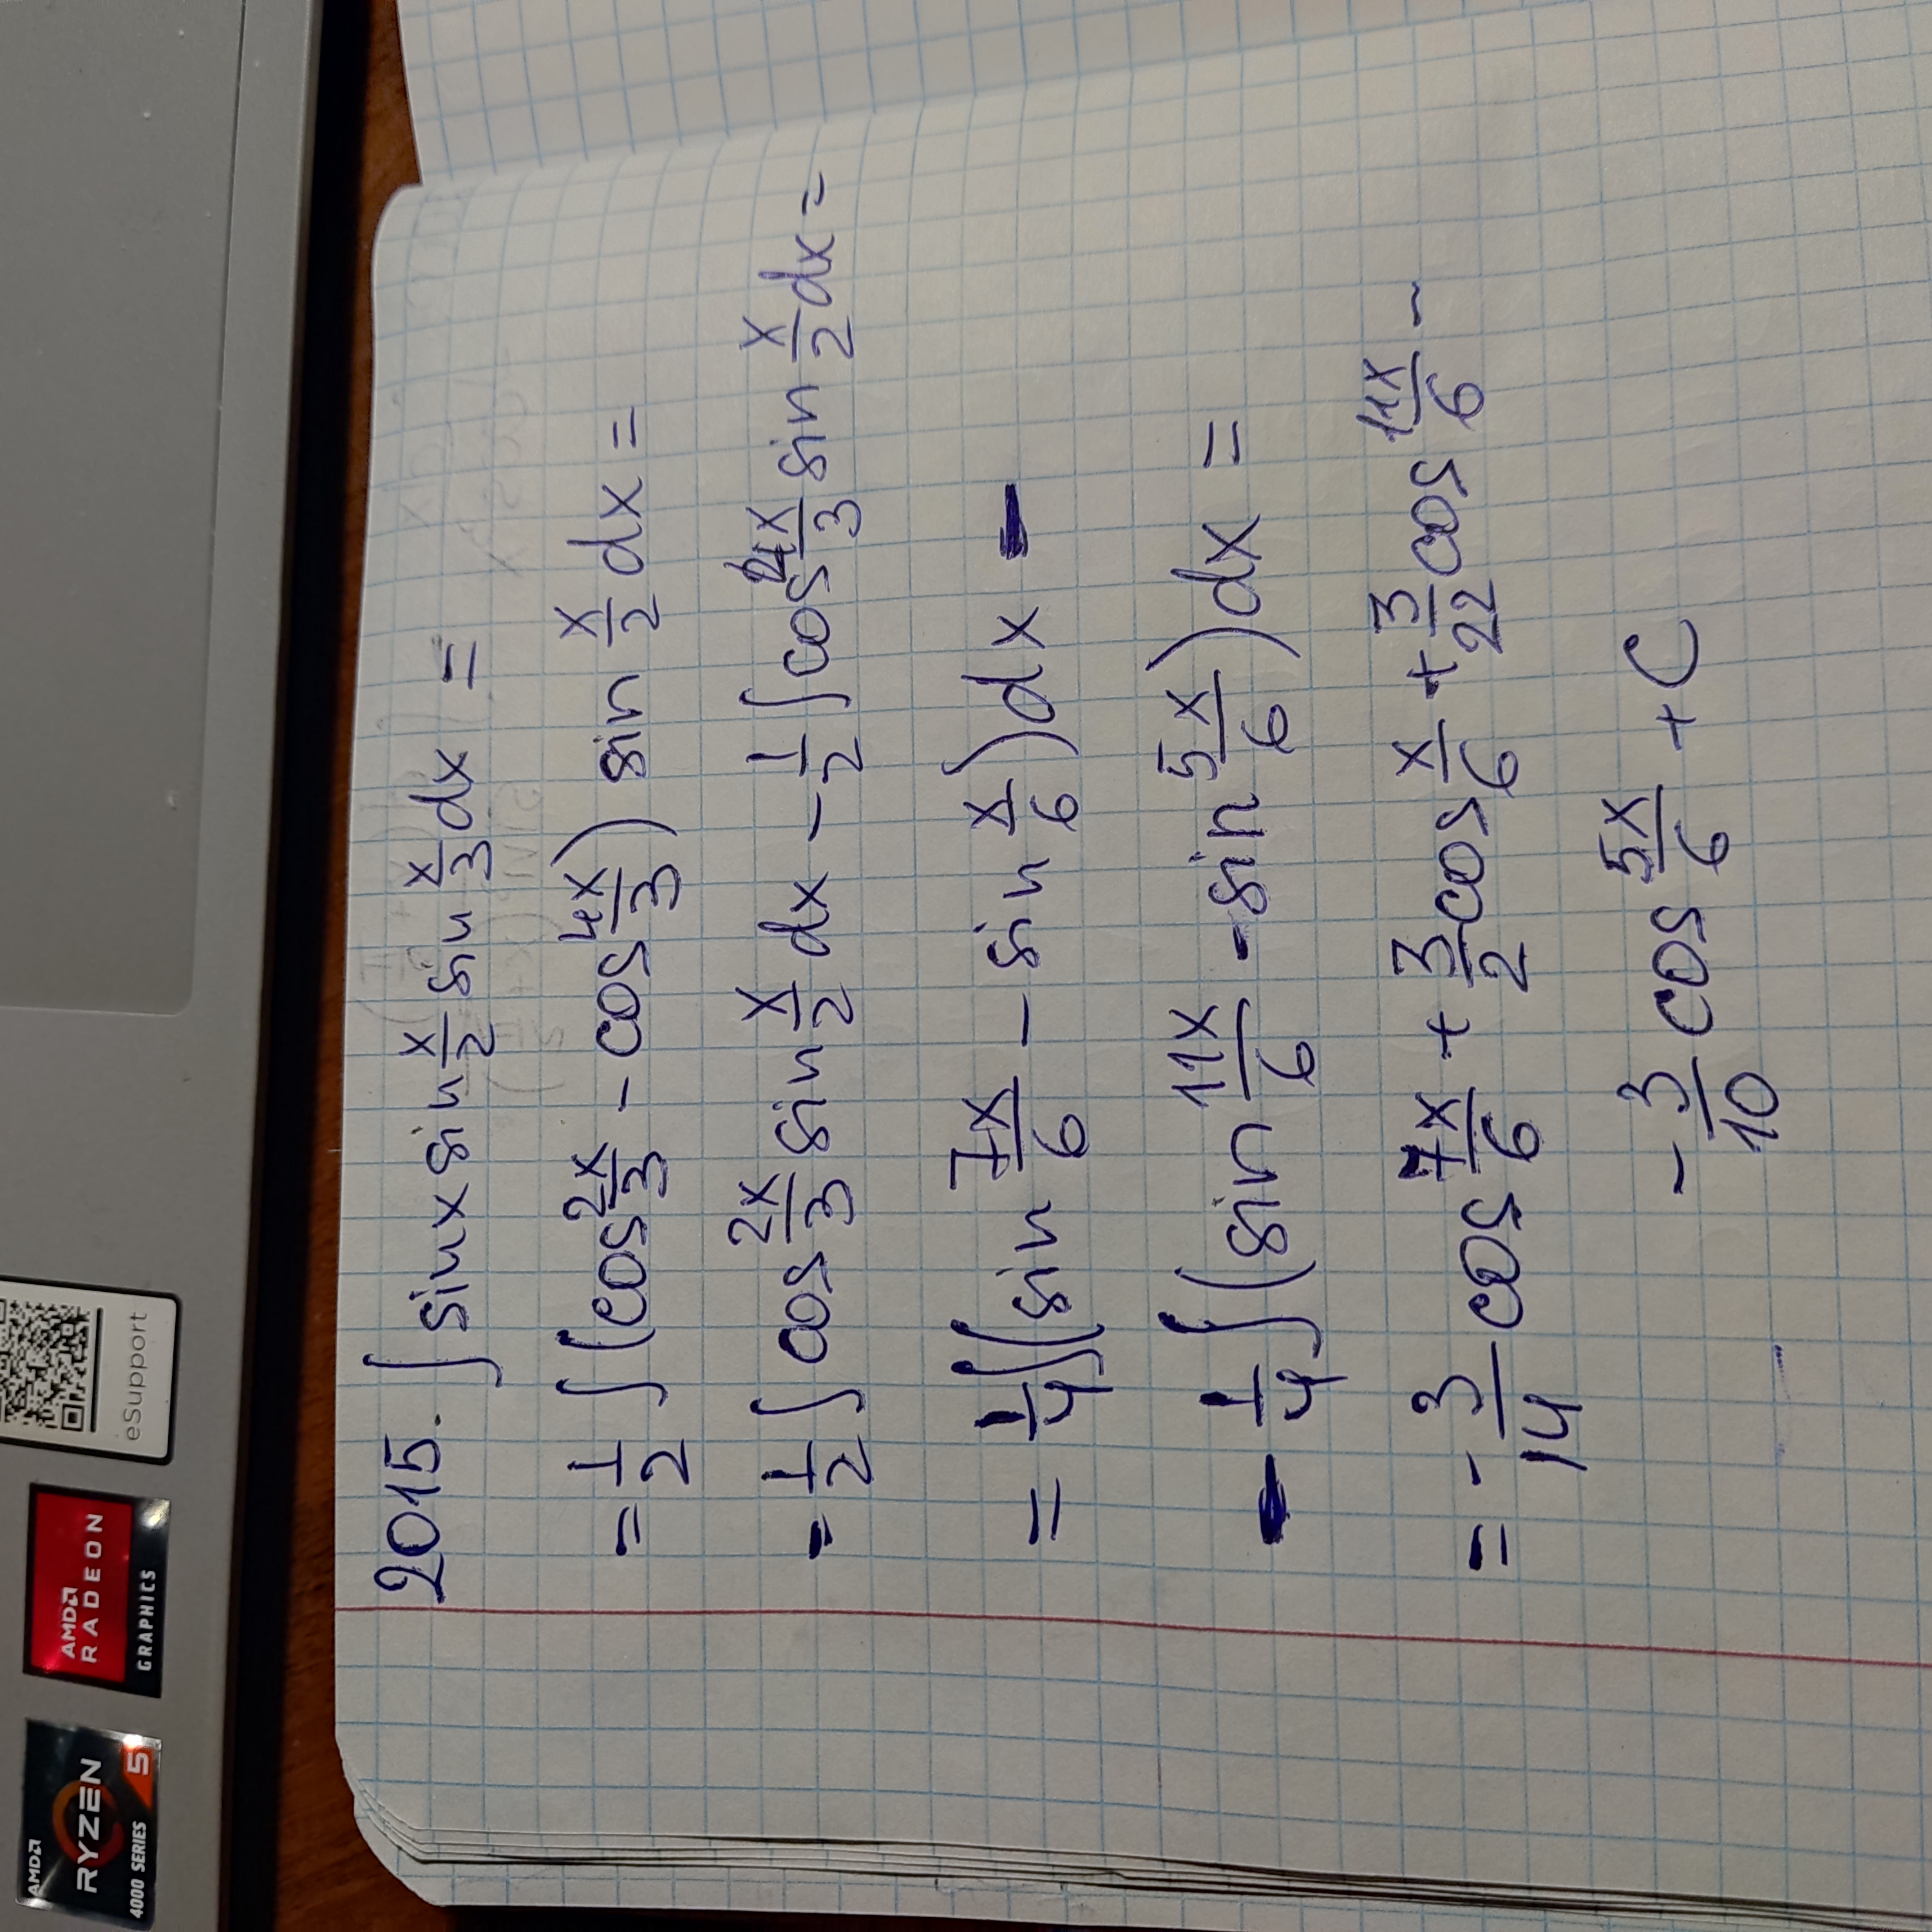 AMD
RYZEN
4000 SERIES 5
AMD
RADEON
GRAPHICS
eSupport
2015. ∫ sin x sin x/2 sin x/3 dx =
= 1/2 ∫ (cos 2x/3 - cos 4x/3) sin x/2 dx =
= 1/2 ∫ cos 2x/3 sin x/2 dx - 1/2 ∫ cos 4x/3 sin x/2 dx =
= 1/4 ∫ (sin 7x/6 - sin x/6) dx -
- 1/4 ∫ (sin 11x/6 - sin 5x/6) dx =
= - 3/14 cos 7x/6 + 3/2 cos x/6 + 3/22 cos 11x/6 -
- 3/10 cos 5x/6 + C